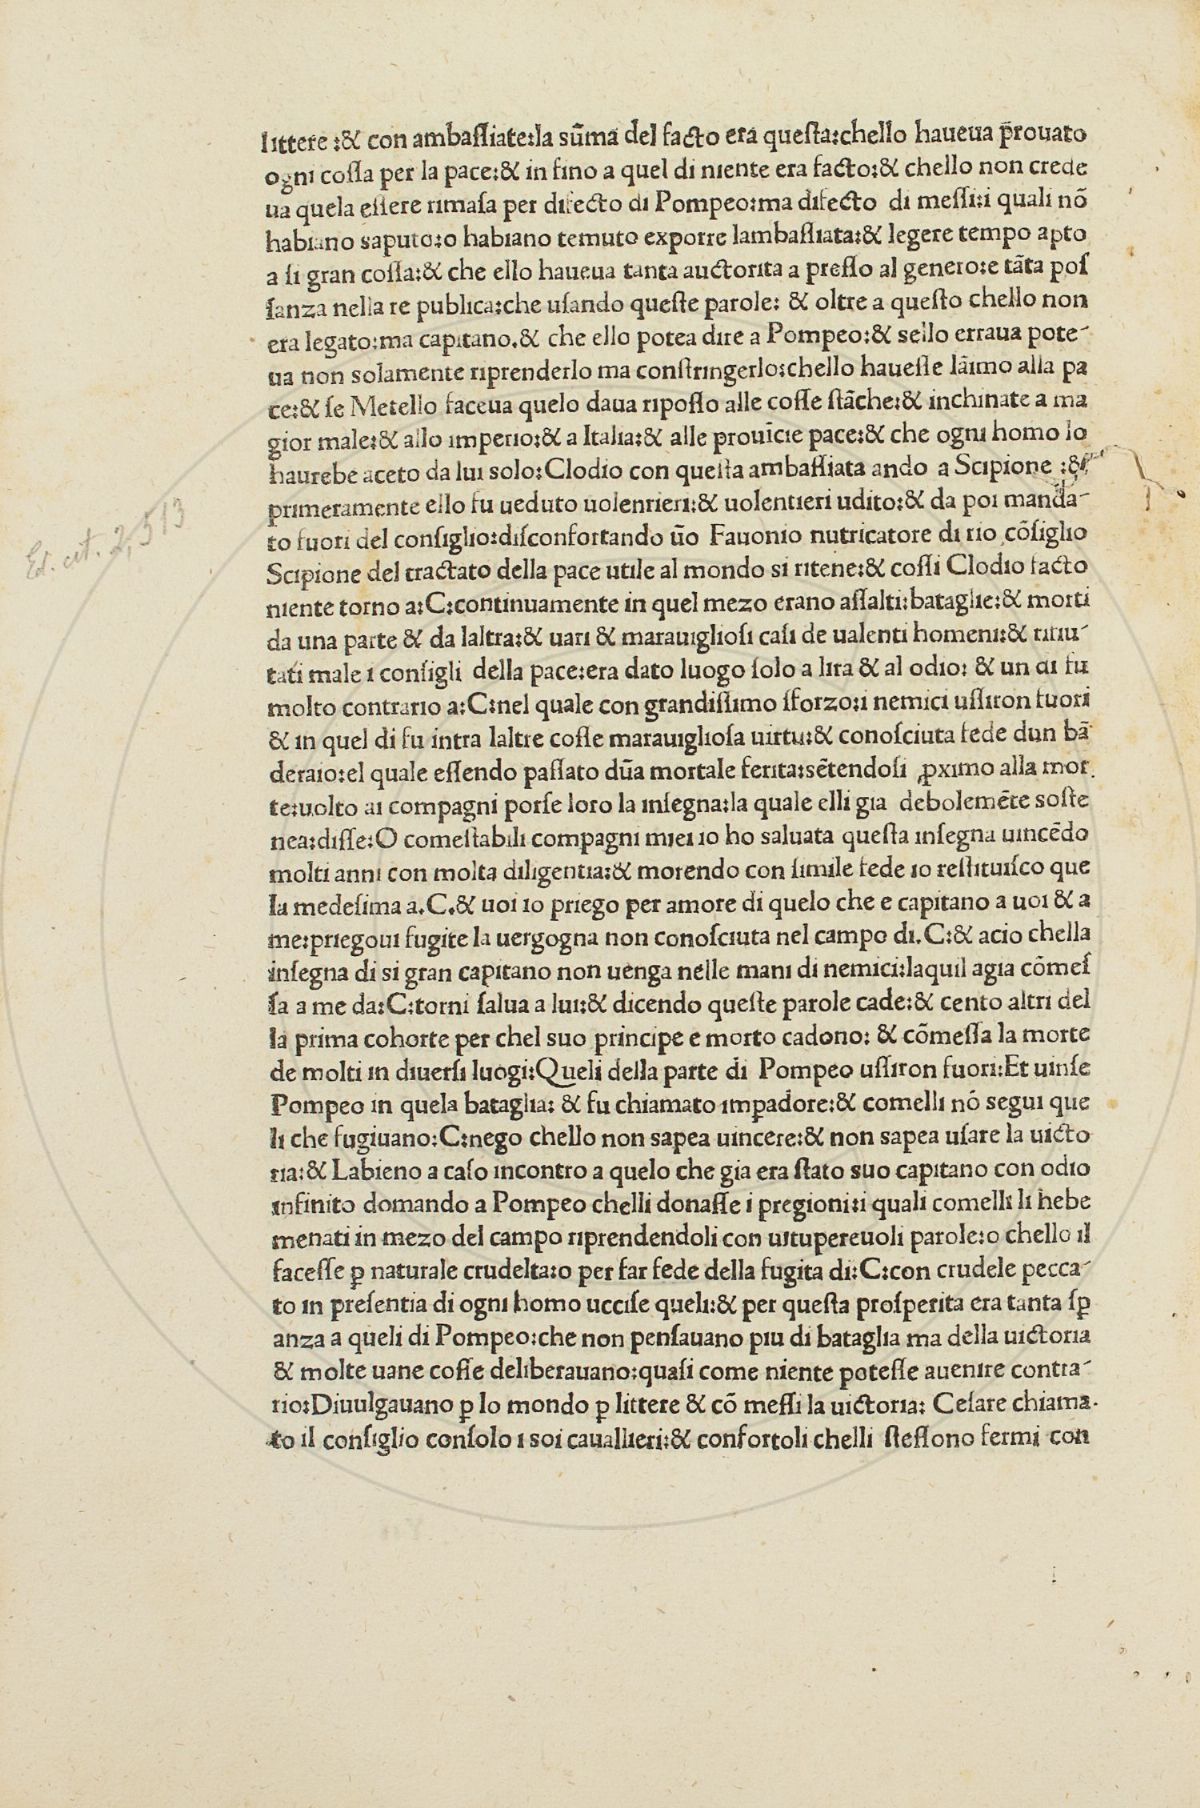 littere :& con ambaſſiate:la sūma del facto era queſta:chello haveva p̄rouato
ogni coſſa per la pace:& in fino a quel di niente era facto:& chello non crede
ua quela eſſere rimaſa per difecto di Pompeo:ma difecto di meſſi:i quali nō
habiano saputo:o habiano temuto exporre lambaſſiata:& legere tempo apto
a ſi gran coſſa:& che ello haueua tanta auctorita a preſſo al genero:e tāta poſ
ſanza nella re publica:che uſando queſte parole: & oltre a queſto chello non
era legato:ma capitano.& che ello potea dire a Pompeo:& sello erraua pote-
ua non solamente riprenderlo ma conſtringerlo:chello haueſſe lāimo alla pa
ce:& ſe Metello faceua quelo daua ripoſſo alle coſſe ſtāche:& inchinate a ma
gior male:& allo imperio:& a Italia:& alle prouīcie pace:& che ogni homo lo
haurebe aceto da lui solo:Clodio con queſta ambaſſiata ando a Scipione :&
primeramente ello fu ueduto uolenrieri:& uolentieri udito:& da poi manda-
to fuori del conſiglio:diſconfortando ūo Fauonio nutricatore di rio cōſiglio
Scipione del tractato della pace utile al mondo si ritene:& coſſi Clodio facto
niente torno a:C:continuamente in quel mezo erano aſſalti:bataglie:& morti
da una parte & da laltra:& uari & marauiglioſi caſi de ualenti homeni:& rifiu-
tati male i conſigli della pace:era dato luogo ſolo a lira & al odio: & un di fu
molto contrario a:C:nel quale con grandiſſimo ſforzo:i nemici uſſiron fuori
& in quel di fu intra laltre coſſe marauiglioſa uirtu:& conoſciuta fede dun bā
deraio:el quale eſſendo paſſato dūa mortale ferita:sētendoſi ꝓximo alla mor
te:uolto ai compagni porſe loro la inſegna:la quale elli gia debolemēte soſte
nea:diſſe:O comeſtabili compagni miei io ho saluata queſta inſegna uincēdo
molti anni con molta diligentia:& morendo con ſimile fede io reſtituiſco que
la medeſima a.C.& uoi io priego per amore di quelo che e capitano a uoi & a
me:priegoui fugite la uergogna non conoſciuta nel campo di.C:& acio chella
inſegna di si gran capitano non uenga nelle mani di nemici:laquil agia cōmeſ
ſa a me da:C:torni ſalua a lui:& dicendo queſte parole cade:& cento altri del
la prima cohorte per chel suo principe e morto cadono: & cōmeſſa la morte
de molti in diuerſi luogi:Queli della parte di Pompeo uſſiron fuori:Et uinſe
Pompeo in quela bataglia: & fu chiamato imꝑadore:& comelli nō segui que
li che fugiuano:C:nego chello non sapea uincere:& non sapea uſare la uicto
ria:& Labieno a caſo incontro a quelo che gia era ſtato suo capitano con odio
infinito domando a Pompeo chelli donaſſe i pregioni:i quali comelli li hebe
menati in mezo del campo riprendendoli con uitupereuoli parole:o chello il
faceſſe ꝑ naturale crudelta:o per far fede della fugita di:C:con crudele pecca-
to in preſentia di ogni homo ucciſe queli:& per queſta proſperita era tanta ſꝑ
anza a queli di Pompeo:che non penſauano piu di bataglia ma della uictoria
& molte uane coſſe deliberauano:quaſi come niente poteſſe auenire contra-
rio:Diuulgauano ꝑ lo mondo ꝑ littere & cō meſſi la uictoria: Ceſare chiama-
to il conſiglio conſolo i soi cauallieri:& confortoli chelli ſteſſono fermi con
Ed. cit. 2, 513